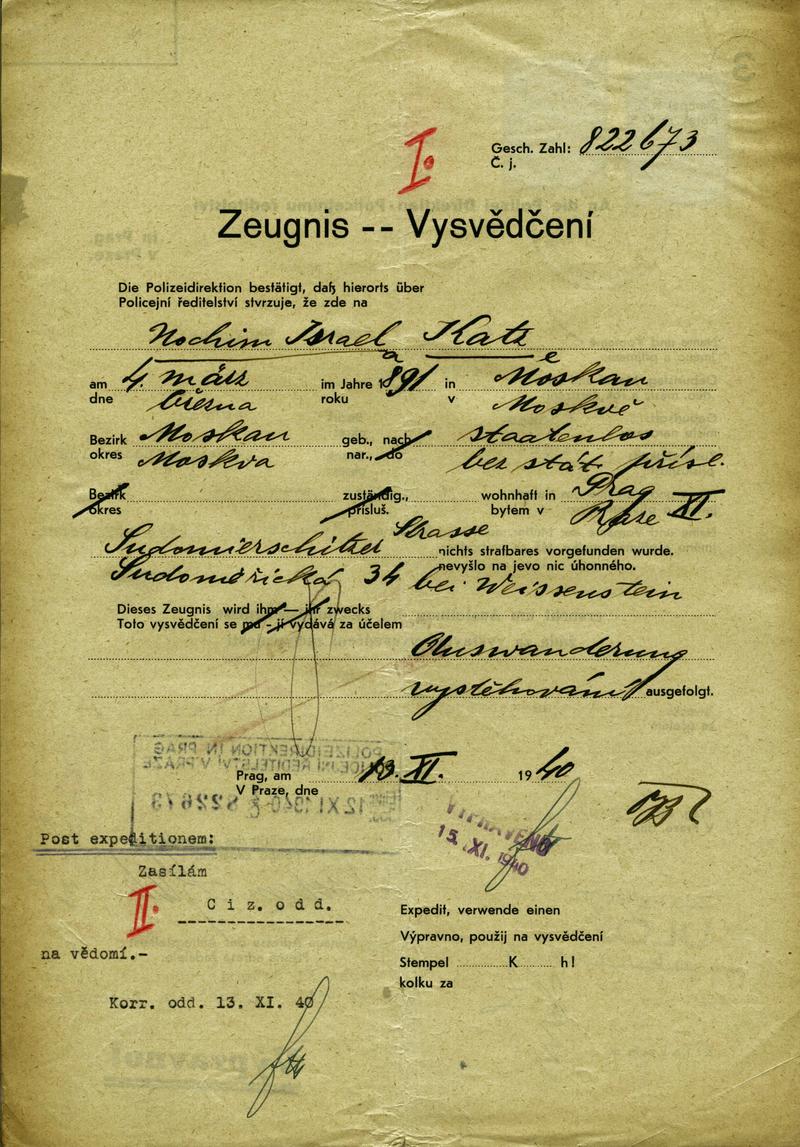 I.
Gesch. Zahl: 822673
Č. j.
Zeugnis -- Vysvědčení
Die Polizeidirektion bestätigt, daß hierorts über
Policejní ředitelství stvrzuje, že zde na
Nochim Israel Katz
a e
am 4. März im Jahre 1891 in Moskau
dne března roku v Moskvě
Bezirk Moskau geb., nach staatenlos
okres Moskva nar., do bez stát. přísl.
Bezirk zuständig., wohnhaft in Prag
okres přísluš. bytem v Praze XI.
Sudomierschitzer Strasse nichts strafbares vorgefunden wurde.
Sudoměřická 34 nevyšlo na jevo nic úhonného.
bei Weissenstein
Dieses Zeugnis wird ihm — ihr zwecks
Toto vysvědčení se mu - jí vydává za účelem
Auswanderung
vystěhování ausgefolgt.
POLIZEIDIREKTION IN PRAG
POLICEJNÍ ŘEDITELSTVÍ V PRAZE
Prag, am 13. XI. 1940
V Praze, dne
12. XI. 1940
VYPRAVENO
15. XI. 1940
Post expeditionem:
Zasílám
II. Ciz. odd.
na vědomí.-
Korr. odd. 13. XI. 40
Expedit, verwende einen
Výpravno, použij na vysvědčení
Stempel K h l
kolku za